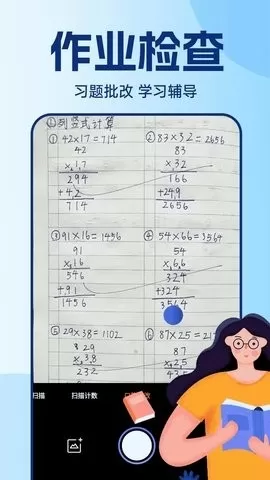 作业检查
习题批改 学习辅导
①列竖式计算
① 42×17=714
② 83×32=2656
42
83
×1,7
×32
294
166
+4,2
+24,9
714
2656
③ 91×16=1456
④ 54×66=3564
91
54
×16
×6,6
546
324
+91
+324
1456
3564
⑤ 29×38=1102
⑥ 87×25=217
29
87
×3,8
×2,5
232
435
扫描
扫描计数